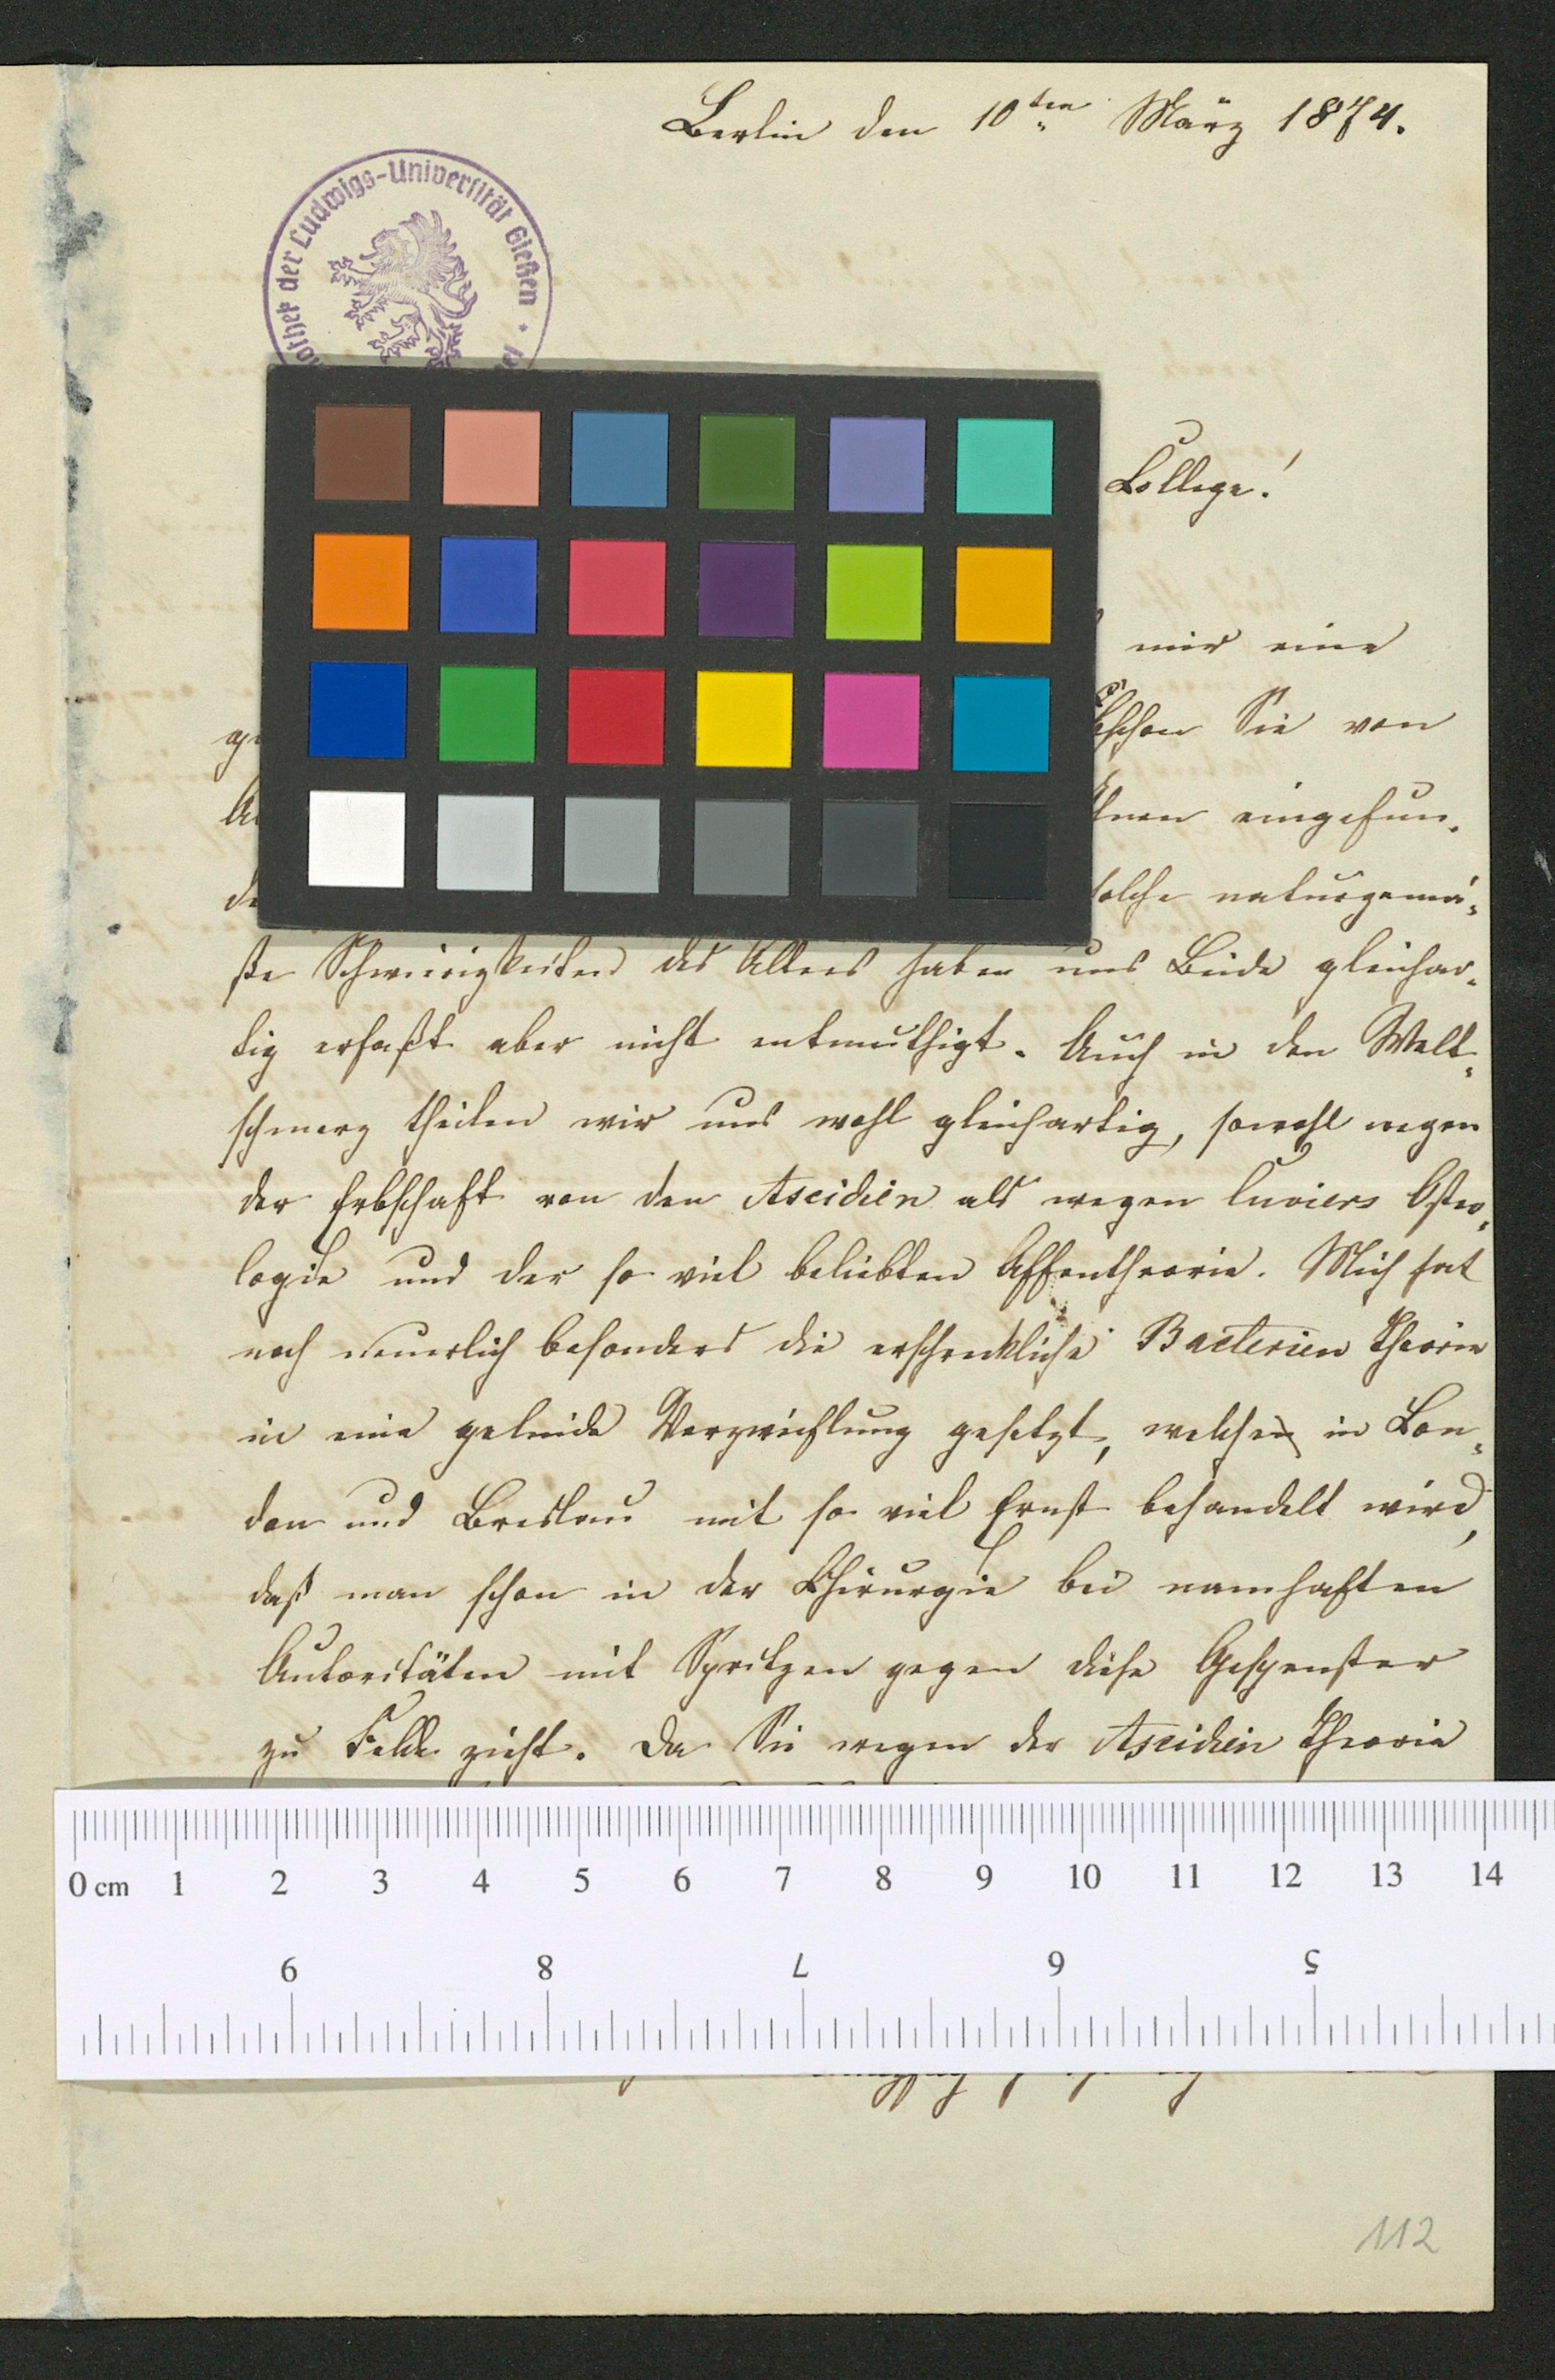 Berlin den 10ten März 1874.
der Ludwigs-Universität Gießen
College!
mir eine
Obschon Sie von
Ihnen eingefun-
solche naturgemä-
ße Schwierigkeiten des Alters haben uns Beide gleichar-
tig erfaßt aber nicht entmuthigt. Auch in den Welt-
schmerz theilen wir uns wohl gleichartig, sowohl wegen
der Erbschaft von den Ascidien als wegen Cuviers Osteo-
logie und der so viel beliebten Affentheorie. Mich hat
noch neuerlich besonders die erschreckliche Bacterien Theorie
in eine gelinde Verzweiflung gesetzt, welche in Lon-
don und Breslau mit so viel Ernst behandelt wird,
daß man schon in der Chirurgie bei namhaften
Autoritäten mit Spritzen gegen diese Gespenster
zu Felde zieht. Da Sie wegen der Ascidien Theorie
0 cm 1 2 3 4 5 6 7 8 9 10 11 12 13 14
9 8 7 6 5
112